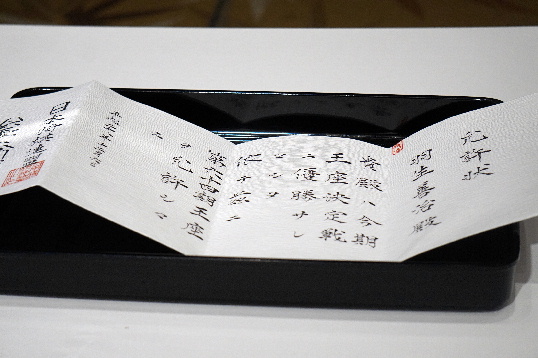 允許状
羽生善治殿
貴殿ハ今期
王座決定戦
ニ優勝サレ
依テ茲ニ
第六十四期王座
ヲ允許シマ
ス
日本将棋連盟